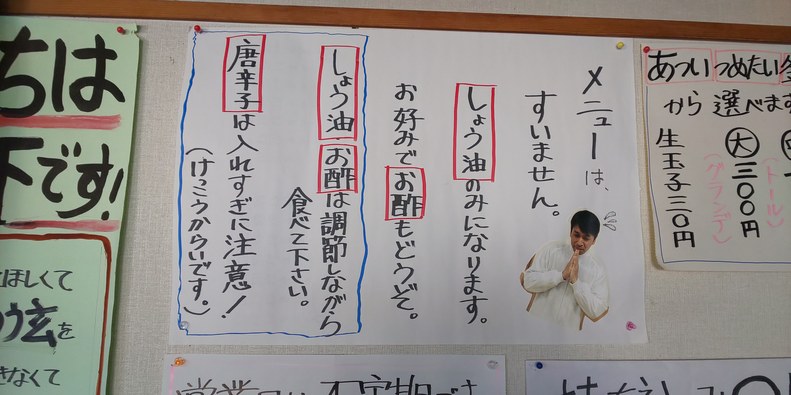 メニューは、
すいません。
しょう油のみになります。
お好みでお酢もどうぞ。
しょう油・お酢は調節しながら
食べて下さい。
唐辛子は入れすぎに注意！
（けっこうからいです。）
あつい つめたい
から選べます
大 三〇〇円
（グランデ）
（トール）
生玉子三〇円
ちは
下です!
ほしくて
う玄を
きなくて
営業日は不定期でさ